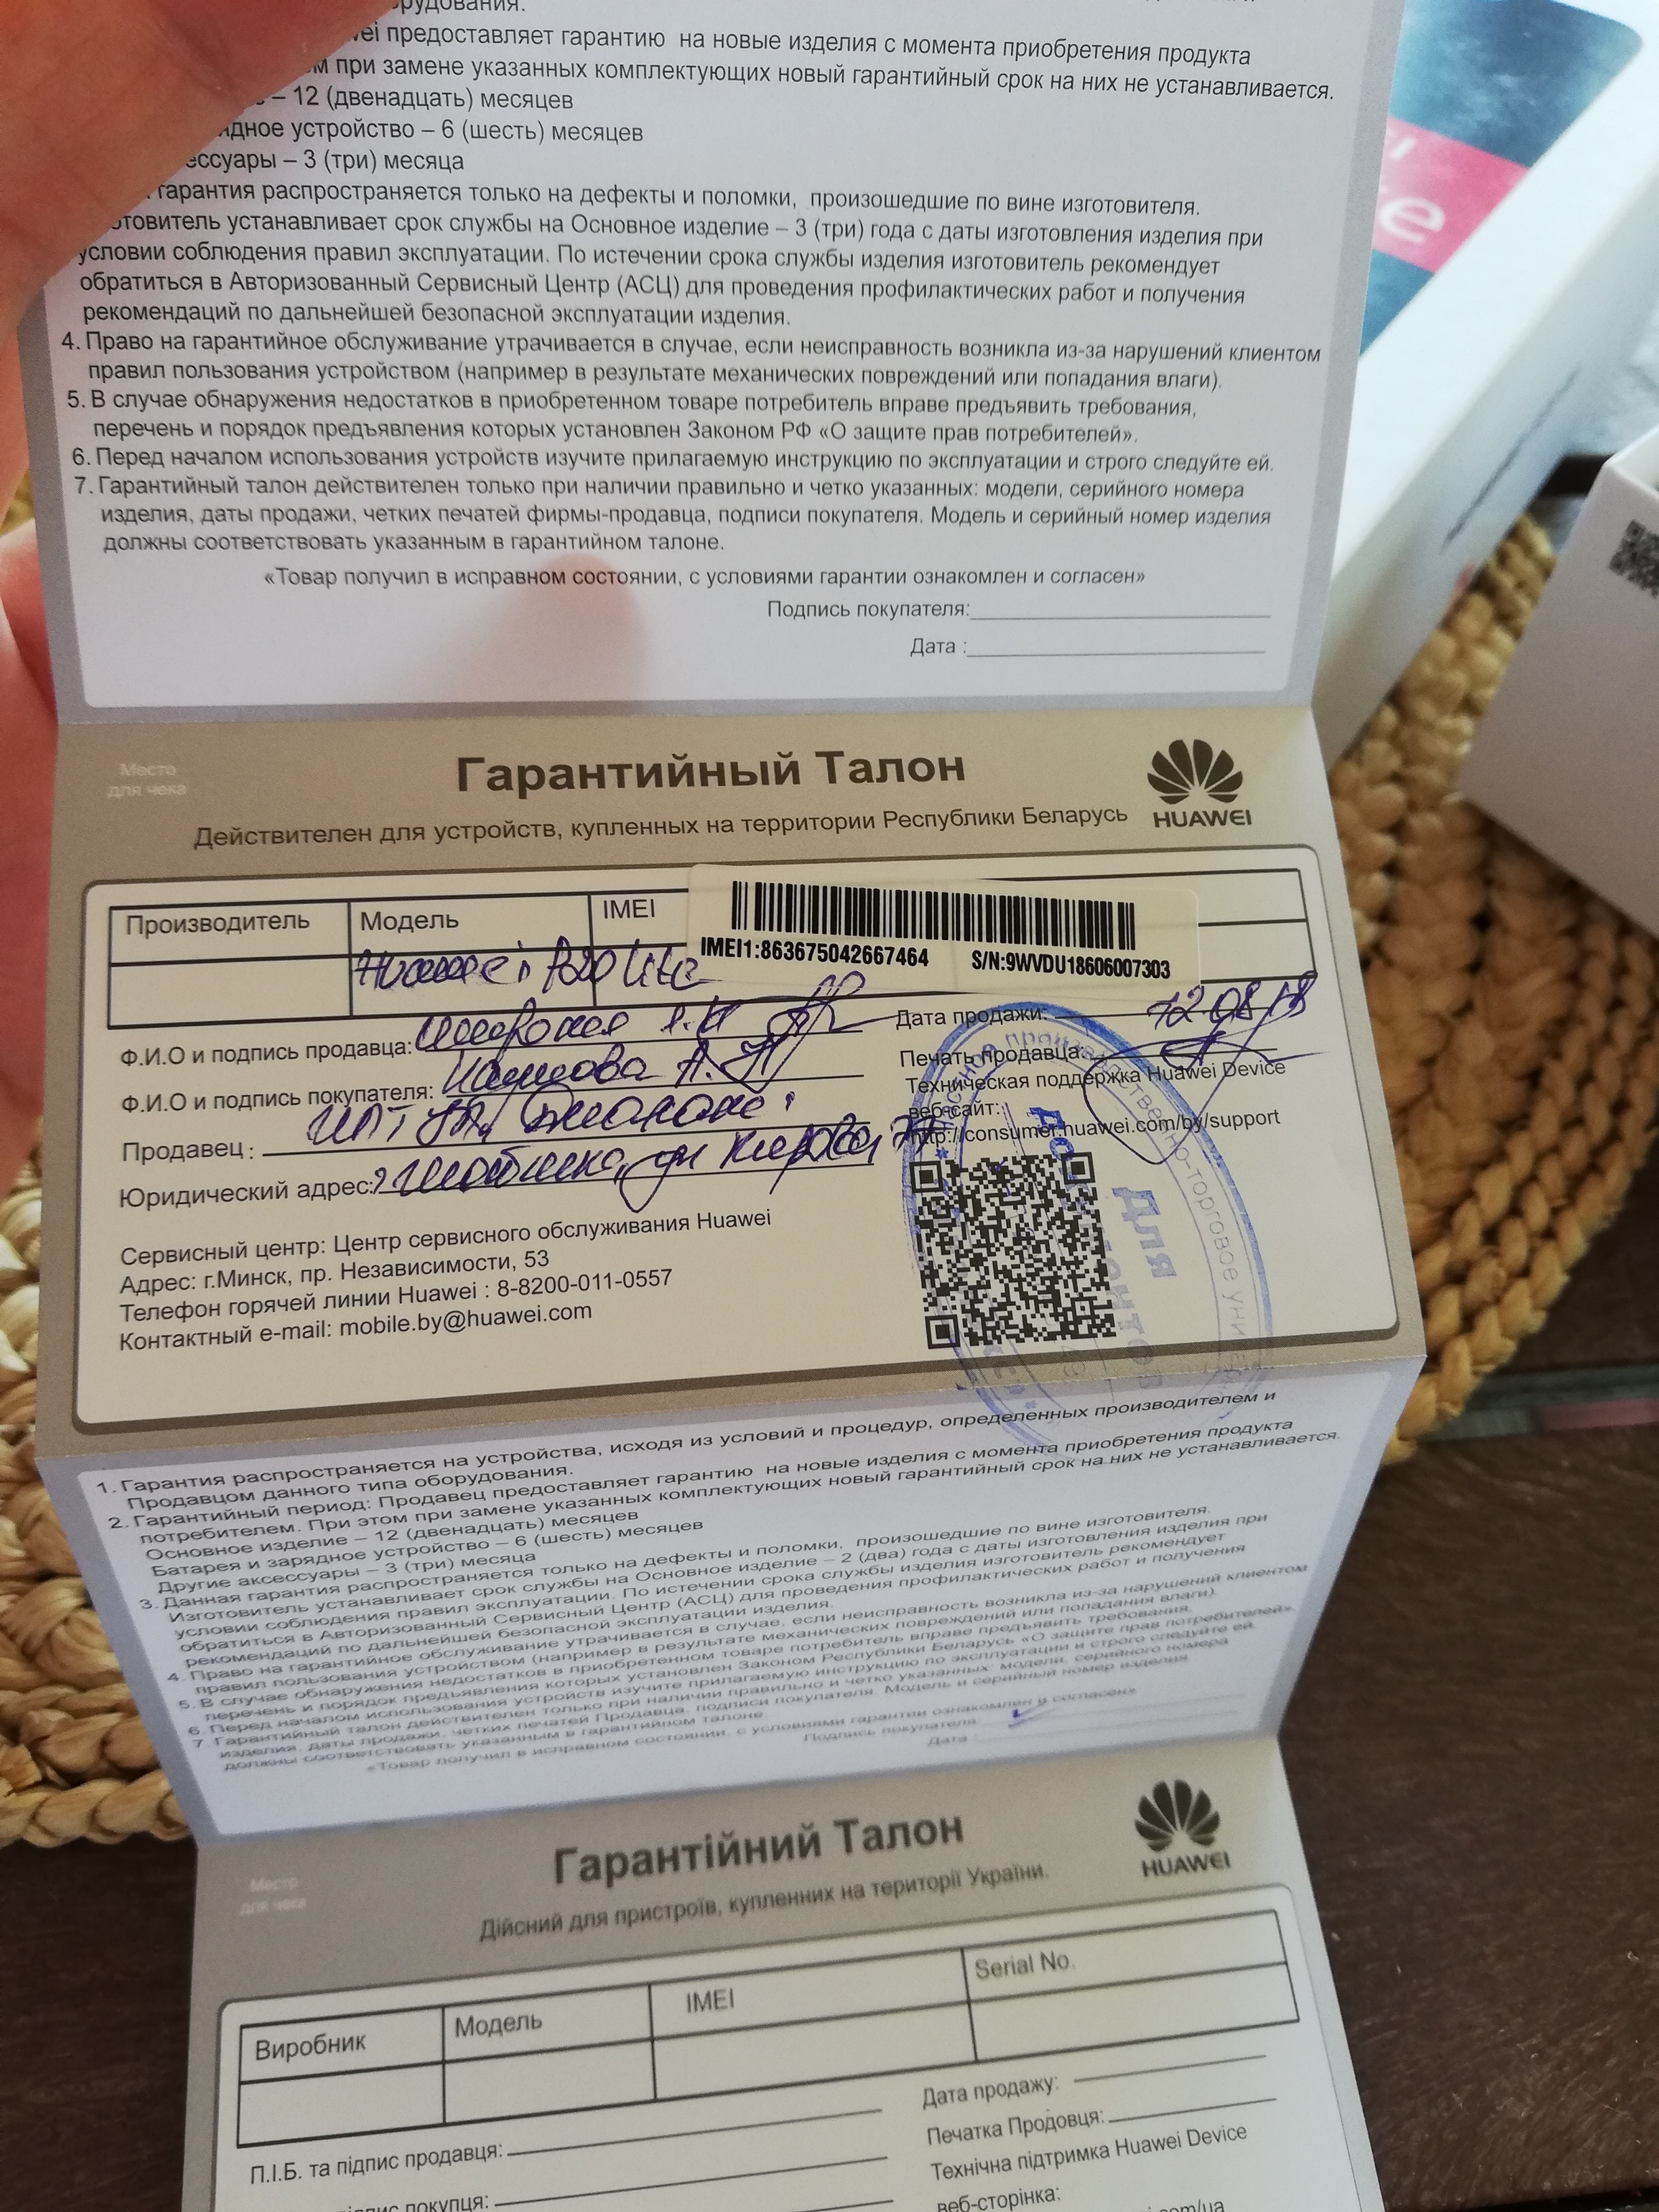 орудования.
предоставляет гарантию на новые изделия с момента приобретения продукта
при замене указанных комплектующих новый гарантийный срок на них не устанавливается.
– 12 (двенадцать) месяцев
устройство – 6 (шесть) месяцев
ессуары – 3 (три) месяца
гарантия распространяется только на дефекты и поломки, произошедшие по вине изготовителя.
отовитель устанавливает срок службы на Основное изделие – 3 (три) года с даты изготовления изделия при
условии соблюдения правил эксплуатации. По истечении срока службы изделия изготовитель рекомендует
обратиться в Авторизованный Сервисный Центр (АСЦ) для проведения профилактических работ и получения
рекомендаций по дальнейшей безопасной эксплуатации изделия.
4. Право на гарантийное обслуживание утрачивается в случае, если неисправность возникла из-за нарушений клиентом
правил пользования устройством (например в результате механических повреждений или попадания влаги).
5. В случае обнаружения недостатков в приобретенном товаре потребитель вправе предъявить требования,
перечень и порядок предъявления которых установлен Законом РФ «О защите прав потребителей».
6. Перед началом использования устройств изучите прилагаемую инструкцию по эксплуатации и строго следуйте ей.
7. Гарантийный талон действителен только при наличии правильно и четко указанных: модели, серийного номера
изделия, даты продажи, четких печатей фирмы-продавца, подписи покупателя. Модель и серийный номер изделия
должны соответствовать указанным в гарантийном талоне.
«Товар получил в исправном состоянии, с условиями гарантии ознакомлен и согласен»
Подпись покупателя:
Дата :
Место
для чека
Гарантийный Талон
HUAWEI
Действителен для устройств, купленных на территории Республики Беларусь
Производитель Модель IMEI
IMEI1:863675042667464 S/N:9WVDU18606007303
Huawei P20 Lite
Ф.И.О и подпись продавца:
Дата продажи: 12.08.18
Ф.И.О и подпись покупателя:
Печать продавца:
Техническая поддержка Huawei Device
веб-сайт:
http://consumer.huawei.com/by/support
Продавец :
Юридический адрес:
Для
Сервисный центр: Центр сервисного обслуживания Huawei
Адрес: г.Минск, пр. Независимости, 53
Телефон горячей линии Huawei : 8-8200-011-0557
Контактный e-mail: mobile.by@huawei.com
1. Гарантия распространяется на устройства, исходя из условий и процедур, определенных производителем и
Продавцом данного типа оборудования.
2. Гарантийный период: Продавец предоставляет гарантию на новые изделия с момента приобретения продукта
потребителем. При этом при замене указанных комплектующих новый гарантийный срок на них не устанавливается.
Основное изделие – 12 (двенадцать) месяцев
Батарея и зарядное устройство – 6 (шесть) месяцев
Другие аксессуары – 3 (три) месяца
3. Данная гарантия распространяется только на дефекты и поломки, произошедшие по вине изготовителя.
Изготовитель устанавливает срок службы на Основное изделие – 2 (два) года с даты изготовления изделия при
условии соблюдения правил эксплуатации. По истечении срока службы изделия изготовитель рекомендует
обратиться в Авторизованный Сервисный Центр (АСЦ) для проведения профилактических работ и получения
рекомендаций по дальнейшей безопасной эксплуатации изделия.
4. Право на гарантийное обслуживание утрачивается в случае, если неисправность возникла из-за нарушений клиентом
правил пользования устройством (например в результате механических повреждений или попадания влаги).
5. В случае обнаружения недостатков в приобретенном товаре потребитель вправе предъявить требования,
перечень и порядок предъявления которых установлен Законом Республики Беларусь «О защите прав потребителей».
6. Перед началом использования устройств изучите прилагаемую инструкцию по эксплуатации и строго следуйте ей.
7. Гарантийный талон действителен только при наличии правильно и четко указанных: модели, серийного номера
изделия, даты продажи, четких печатей Продавца, подписи покупателя. Модель и серийный номер изделия
должны соответствовать указанным в гарантийном талоне.
«Товар получил в исправном состоянии, с условиями гарантии ознакомлен и согласен»
Подпись покупателя
Дата
Место
для чека
Гарантійний Талон
HUAWEI
Дійсний для пристроїв, купленних на території України.
Виробник Модель IMEI Serial No.
Дата продажу:
П.І.Б. та підпис продавця:
Печатка Продовця:
Технічна підтримка Huawei Device
підпис покупця:
веб-сторінка: